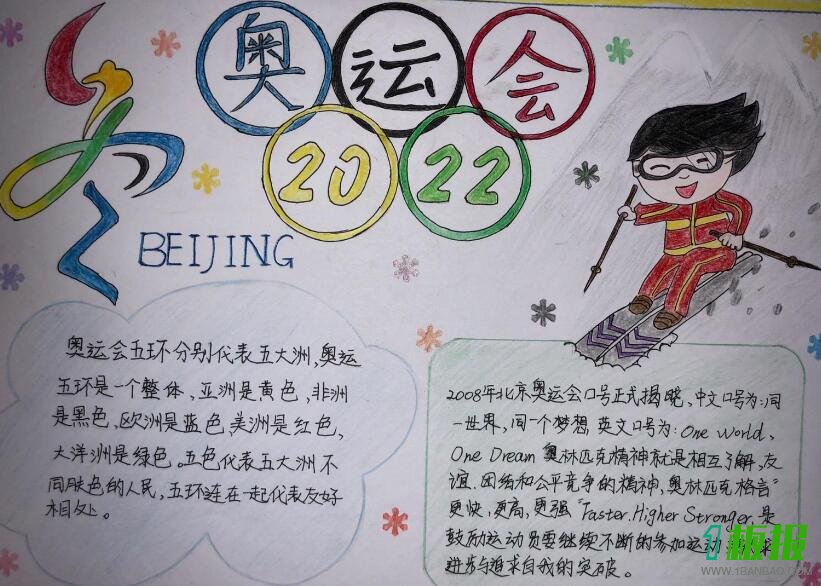 奥运会
2022
BEIJING
奥运会五环分别代表五大洲,奥运
五环是一个整体,亚洲是黄色,非洲
是黑色,欧洲是蓝色,美洲是红色,
大洋洲是绿色。五色代表五大洲不
同肤色的人民,五环连在一起代表友好
相处。
2008年北京奥运会口号正式揭晓、中文口号为:同
一世界,同一个梦想 英文口号为:One World、
One Dream 奥林匹克精神就是相互了解、友
谊、团结和公平竞争的精神,奥林匹克格言"
更快,更高,更强"Faster.Higher Stronger.是
鼓励运动员要继续不断的参加运动
进步与追求自我的突破。
1板报
WWW.1BANBAO.COM